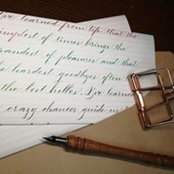 I've learned from life that the
simplest of times brings the
grandest of pleasures and that
the hardest goodbyes often
the best hellos. I've learned
crazy chances guide